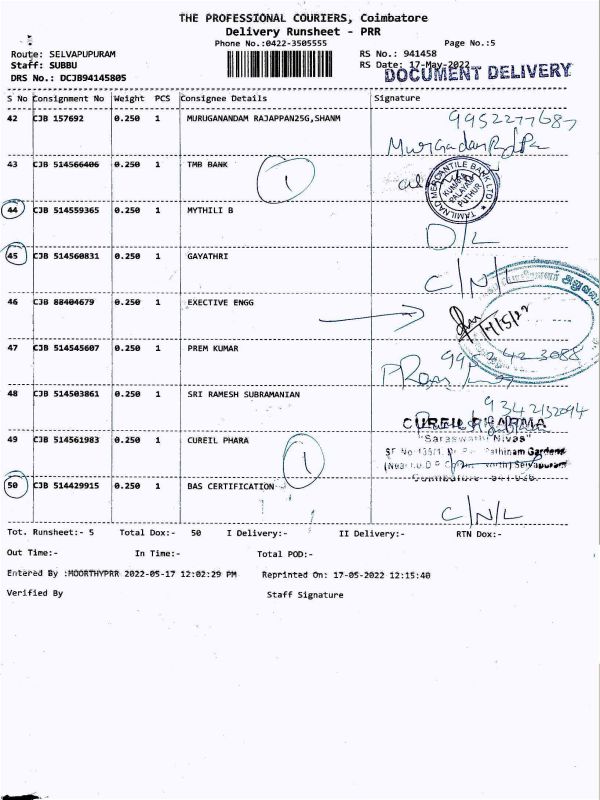 THE PROFESSIONAL COURIERS, Coimbatore
Delivery Runsheet - PRR
Phone No.:0422-3505555 Page No.:5
Route: SELVAPUPURAM RS No.: 941458
Staff: SUBBU RS Date: 17-May-2022
DOCUMENT DELIVERY
DRS No.: DCJB94145805
S No Consignment No Weight PCS Consignee Details Signature
42 CJB 157692 0.250 1 MURUGANANDAM RAJAPPAN25G,SHANM 9952277687
43 CJB 514566406 0.250 1 TMB BANK 1
TAMILNAD MERCANTILE BANK LTD.
44 CJB 514559365 0.250 1 MYTHILI B D/L
45 CJB 514560831 0.250 1 GAYATHRI C/N/L
46 CJB 88404679 0.250 1 EXECTIVE ENGG
47 CJB 514545607 0.250 1 PREM KUMAR
48 CJB 514503861 0.250 1 SRI RAMESH SUBRAMANIAN 9342132094
CUREIL PHARMA
49 CJB 514561983 0.250 1 CUREIL PHARA 1 "Saraswathi Nivas"
50 CJB 514429915 0.250 1 BAS CERTIFICATION C/N/L
Tot. Runsheet:- 5 Total Dox:- 50 I Delivery:- II Delivery:- RTN Dox:-
Out Time:- In Time:- Total POD:-
Entered By :MOORTHYPRR 2022-05-17 12:02:29 PM Reprinted On: 17-05-2022 12:15:40
Verified By Staff Signature